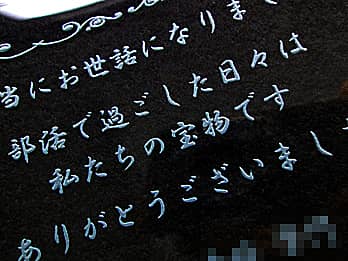 当にお世話になりま
部活で過ごした日々は
私たちの宝物です
ありがとうございまし